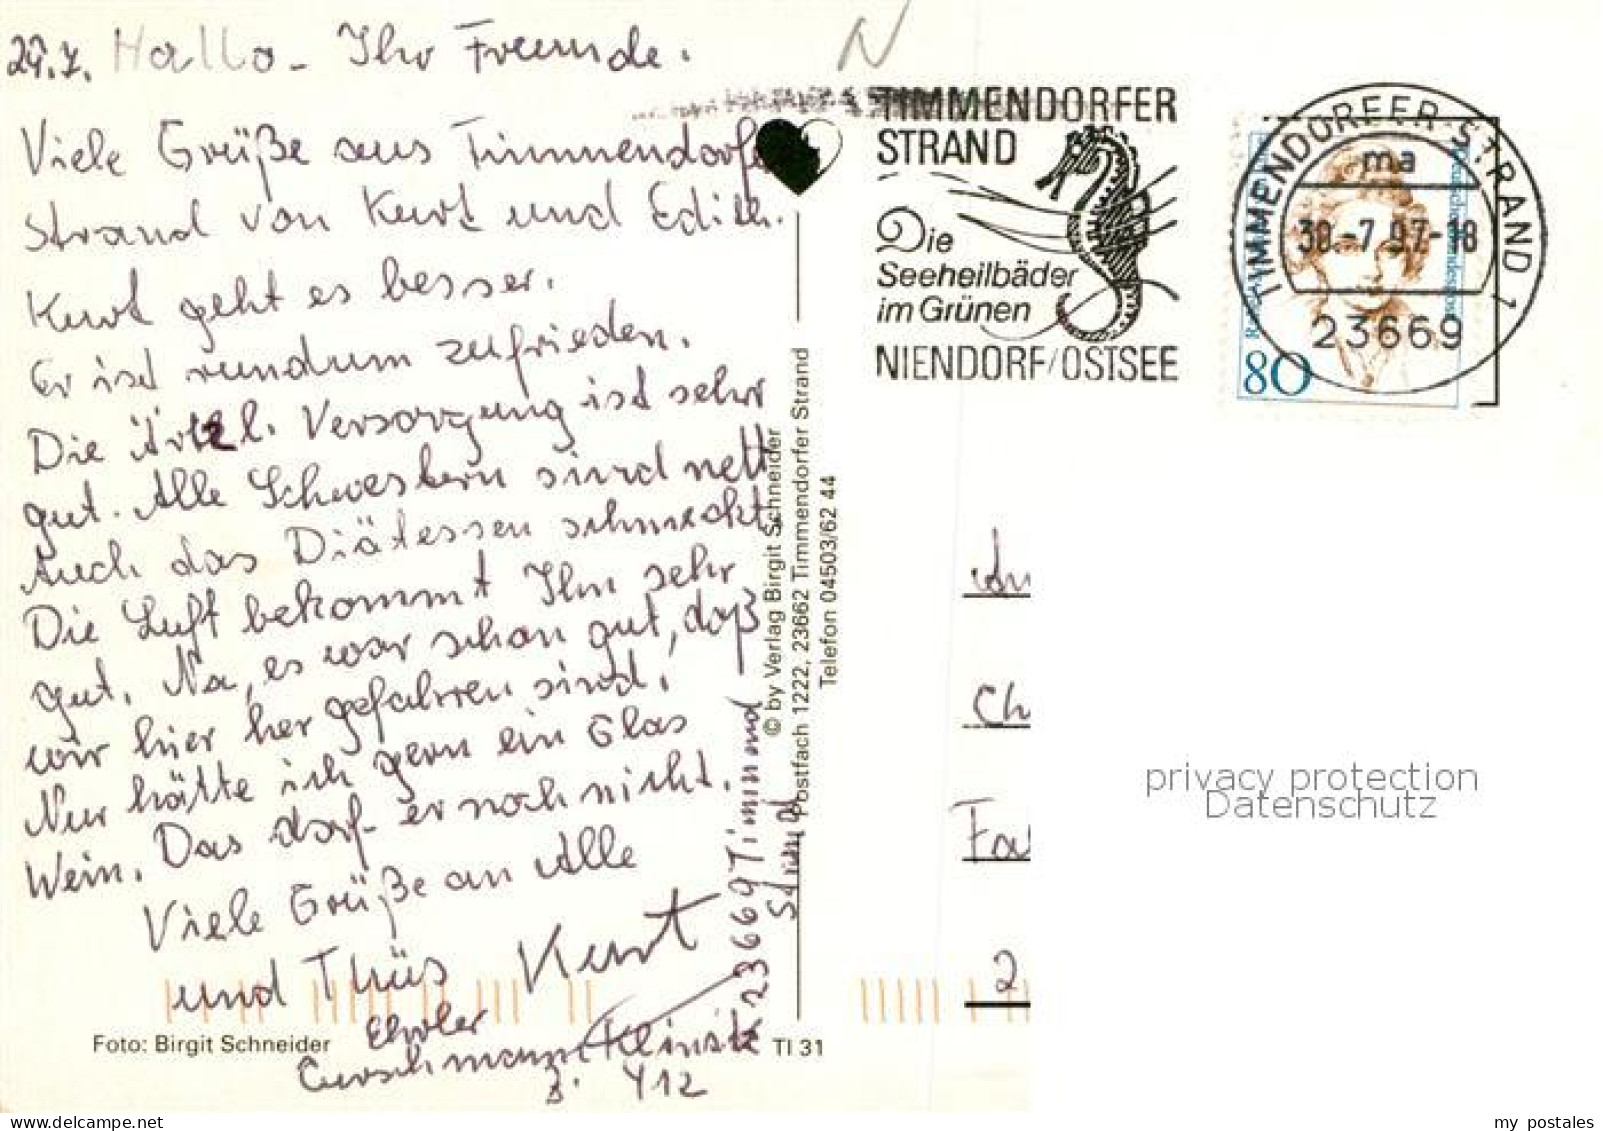 29.7. Hallo - Ihr Freunde.
Viele Grüße aus Timmendorfer
Strand von Kurt und Edith.
Kurt geht es besser.
Er ist rundum zufrieden.
Die Ärtzl. Versorgung ist sehr
gut. Alle Schwestern sind nett
Auch das Diätessen schmeckt.
Die Luft bekommt Ihm sehr
gut. Na, es war schon gut, daß
wir hier her gefahren sind.
Nur hätte ich gern ein Glas
Wein. Das darf er noch nicht.
Viele Grüße an Alle
und Thüs Kurt
Curschmann Klinik
Z. 412
23669 Timmend
Strand
Foto: Birgit Schneider
TI 31
© by Verlag Birgit Schneider
Postfach 1222, 23662 Timmendorfer Strand
Telefon 04503/62 44
N
TIMMENDORFER
STRAND
Die
Seeheilbäder
im Grünen
NIENDORF/OSTSEE
TIMMENDORFER STRAND 1
ma
30.-7.97-18
23669
80
An
Ch
Fa
2
privacy protection
Datenschutz
my postales